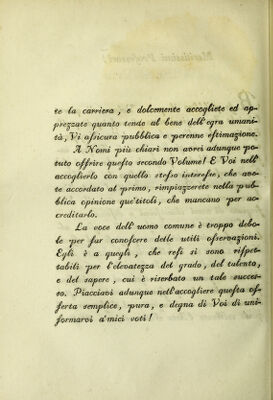 te la carriera, e dolcemente accogliete ed ap-
prezzate quanto tende al bene dell'egra umani-
tà, Vi assicura pubblica e perenne estimazione.
A Nomi più chiari non avrei adunque po-
tuto offrire questo secondo Volume! E Voi nell'
accoglierlo con quello stesso interesse, che ave-
te accordato al primo, rimpiazzerete nella pub-
blica opinione que'titoli, che mancano per ac-
creditarlo.
La voce dell'uomo comune è troppo debo-
le per far conoscere delle utili osservazioni.
Egli è a quegli, che resi si sono rispet-
tabili per l'elevatezza del grado, del talento,
e del sapere, cui è riserbato un tale succes-
so. Piacciavi adunque nell'accogliere questa of-
ferta semplice, pura, e degna di Voi di uni-
formarvi a'mici voti!